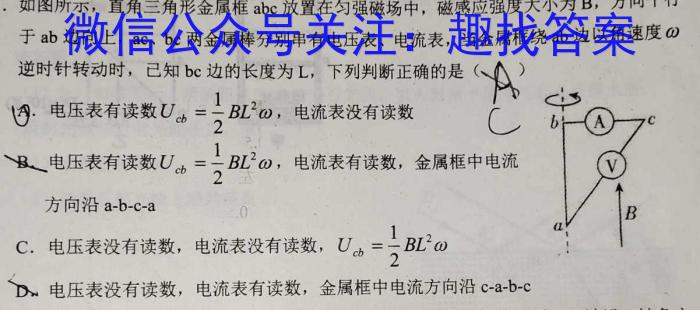 . 如图所示，直角三角形金属框 abc 放置在匀强磁场中，磁感应强度大小为 B，方向平行
于 ab 边向上，ac、bc 两金属棒分别串有电压表、电流表，当金属框绕 ab 边以角速度ω
微信公众号关注：趣找答案
逆时针转动时，已知 bc 边的长度为 L，下列判断正确的是（ A ）
C
A. 电压表有读数U_cb = 1/2 BL²ω，电流表没有读数
B. 电压表有读数U_cb = 1/2 BL²ω，电流表有读数，金属框中电流
方向沿 a-b-c-a
C. 电压表没有读数，电流表没有读数，U_cb = 1/2 BL²ω
D. 电压表没有读数，电流表有读数，金属框中电流方向沿 c-a-b-c
b A c
V
a B